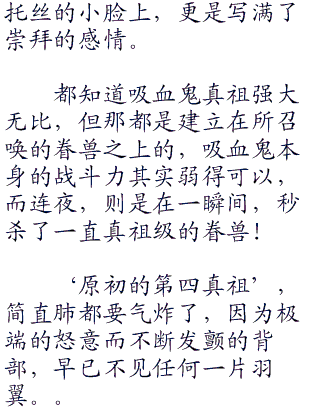 托丝的小脸上，更是写满了
崇拜的感情。
都知道吸血鬼真祖强大
无比，但那都是建立在所召
唤的眷兽之上的，吸血鬼本
身的战斗力其实弱得可以，
而连夜，则是在一瞬间，秒
杀了一直真祖级的眷兽！
‘原初的第四真祖’，
简直肺都要气炸了，因为极
端的怒意而不断发颤的背
部，早已不见任何一片羽
翼。。